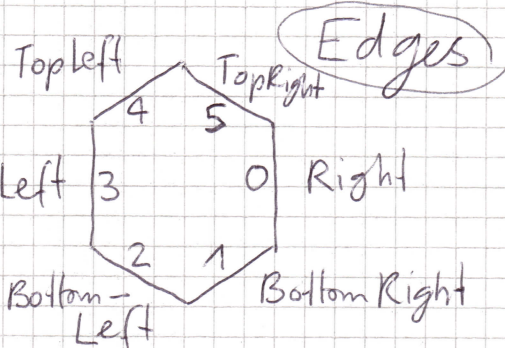 Edges
TopLeft
TopRight
4
5
Left
3
0
Right
2
1
Bottom-
Left
Bottom Right